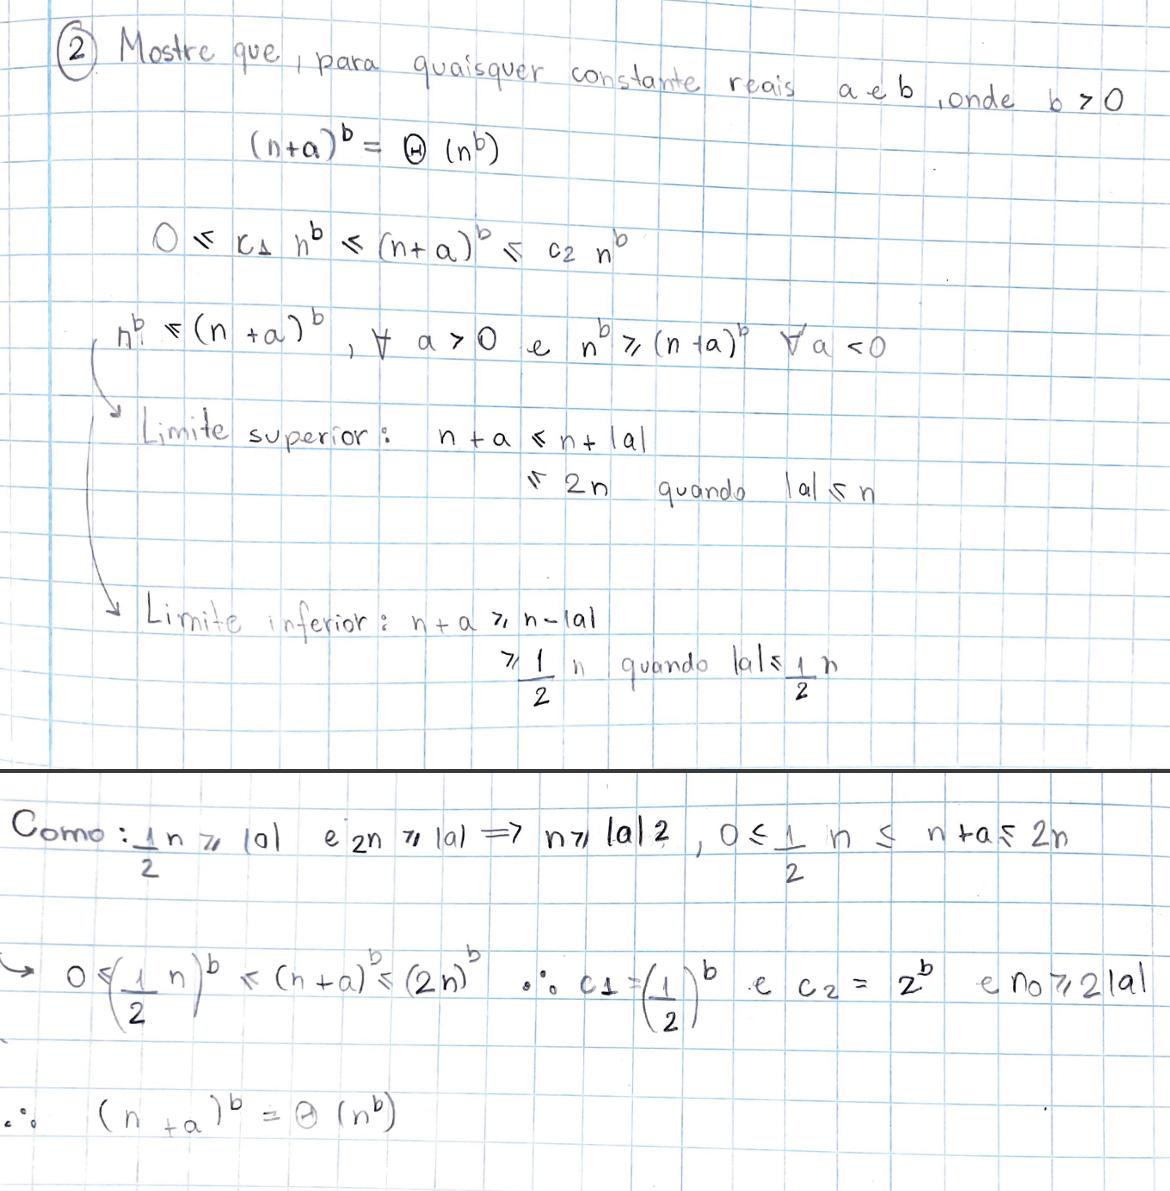 ② Mostre que, para quaisquer constante reais a e b, onde b > 0
(n+a)^b = Θ (n^b)
0 ≤ c1 n^b ≤ (n+a)^b ≤ c2 n^b
n^b ≤ (n+a)^b, ∀ a > 0 e n^b ≥ (n+a)^b ∀ a < 0
Limite superior: n + a ≤ n + |a|
≤ 2n quando |a| ≤ n
Limite inferior: n + a ≥ n - |a|
≥ 1/2 n quando |a| ≤ 1/2 n
Como: 1/2 n ≥ |a| e 2n ≥ |a| => n ≥ |a| 2, 0 ≤ 1/2 n ≤ n + a ≤ 2n
↳ 0 ≤ (1/2 n)^b ≤ (n+a)^b ≤ (2n)^b ∴ c1 = (1/2)^b e c2 = 2^b e n0 ≥ 2|a|
∴ (n+a)^b = Θ (n^b)